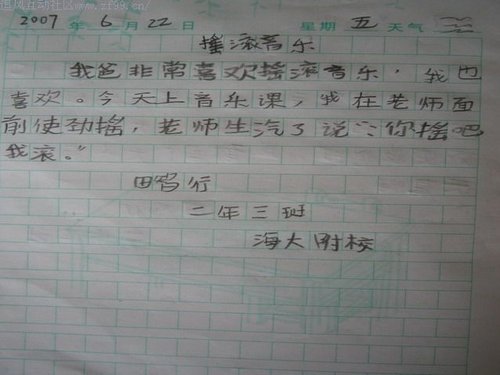 追风互动社区www.zf99.cn/
2007年6月22日 星期五 天气
摇滚音乐
我爸非常喜欢摇滚音乐，我也
喜欢。今天上音乐课，我在老师面
前使劲摇，老师生汽了说：“你摇吧
我滚。”
田 行
二年三班
海大附校